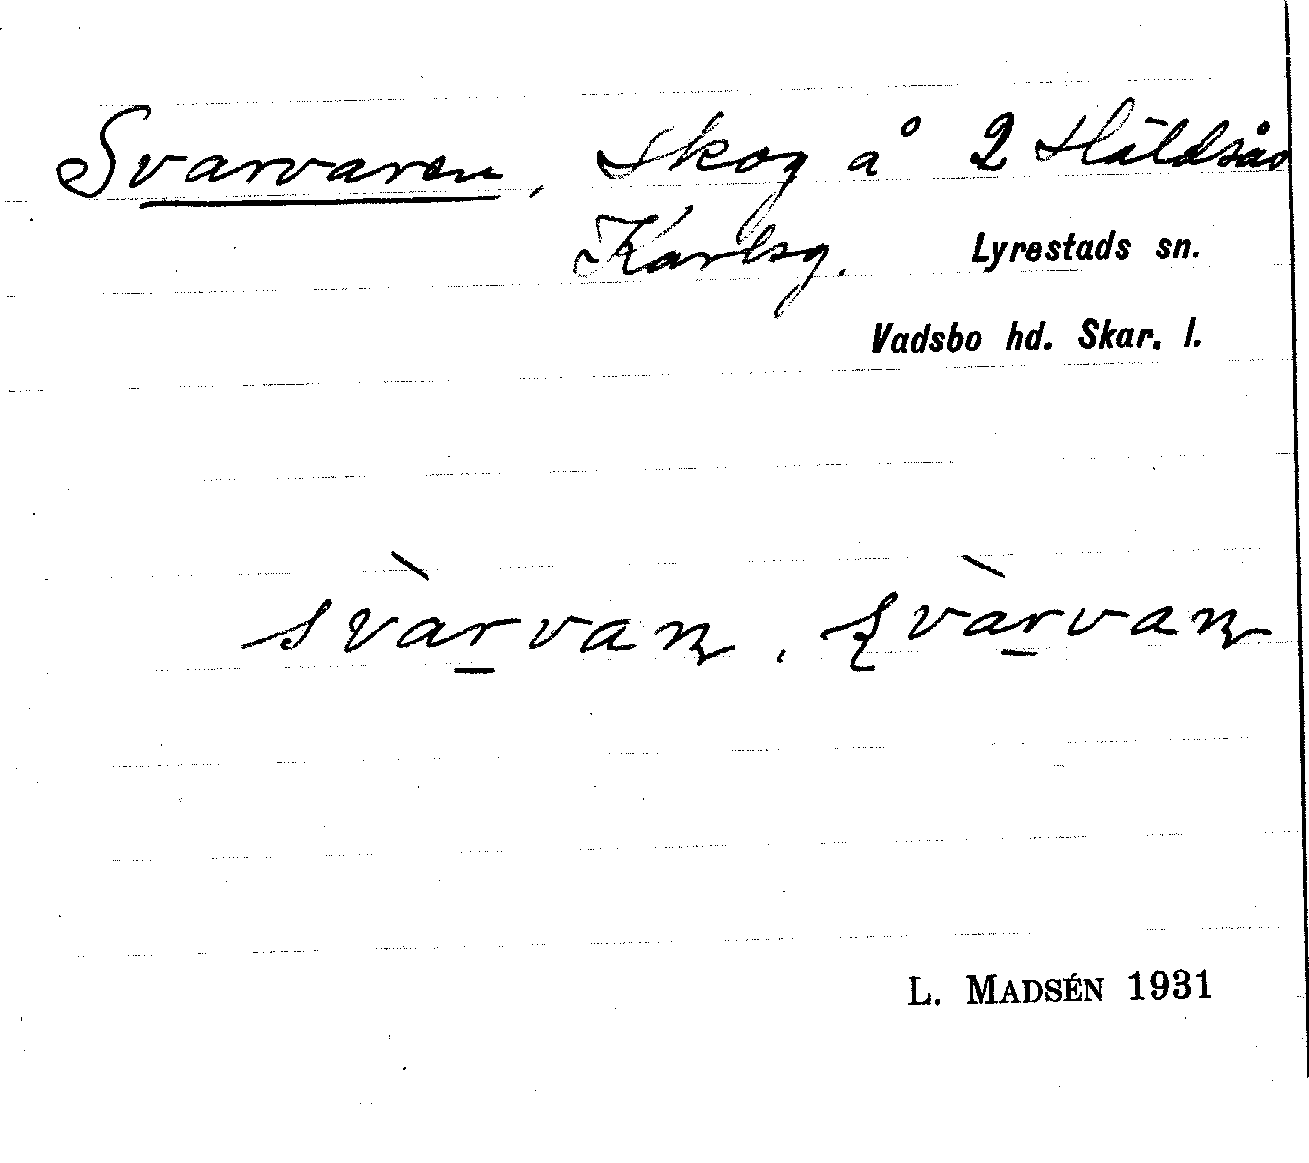 Svarvaren, Skog å 2
Karlsg. Lyrestads sn.
Vadsbo hd. Skar. l.
svàrvan, svàrvan
L. MADSÉN 1931